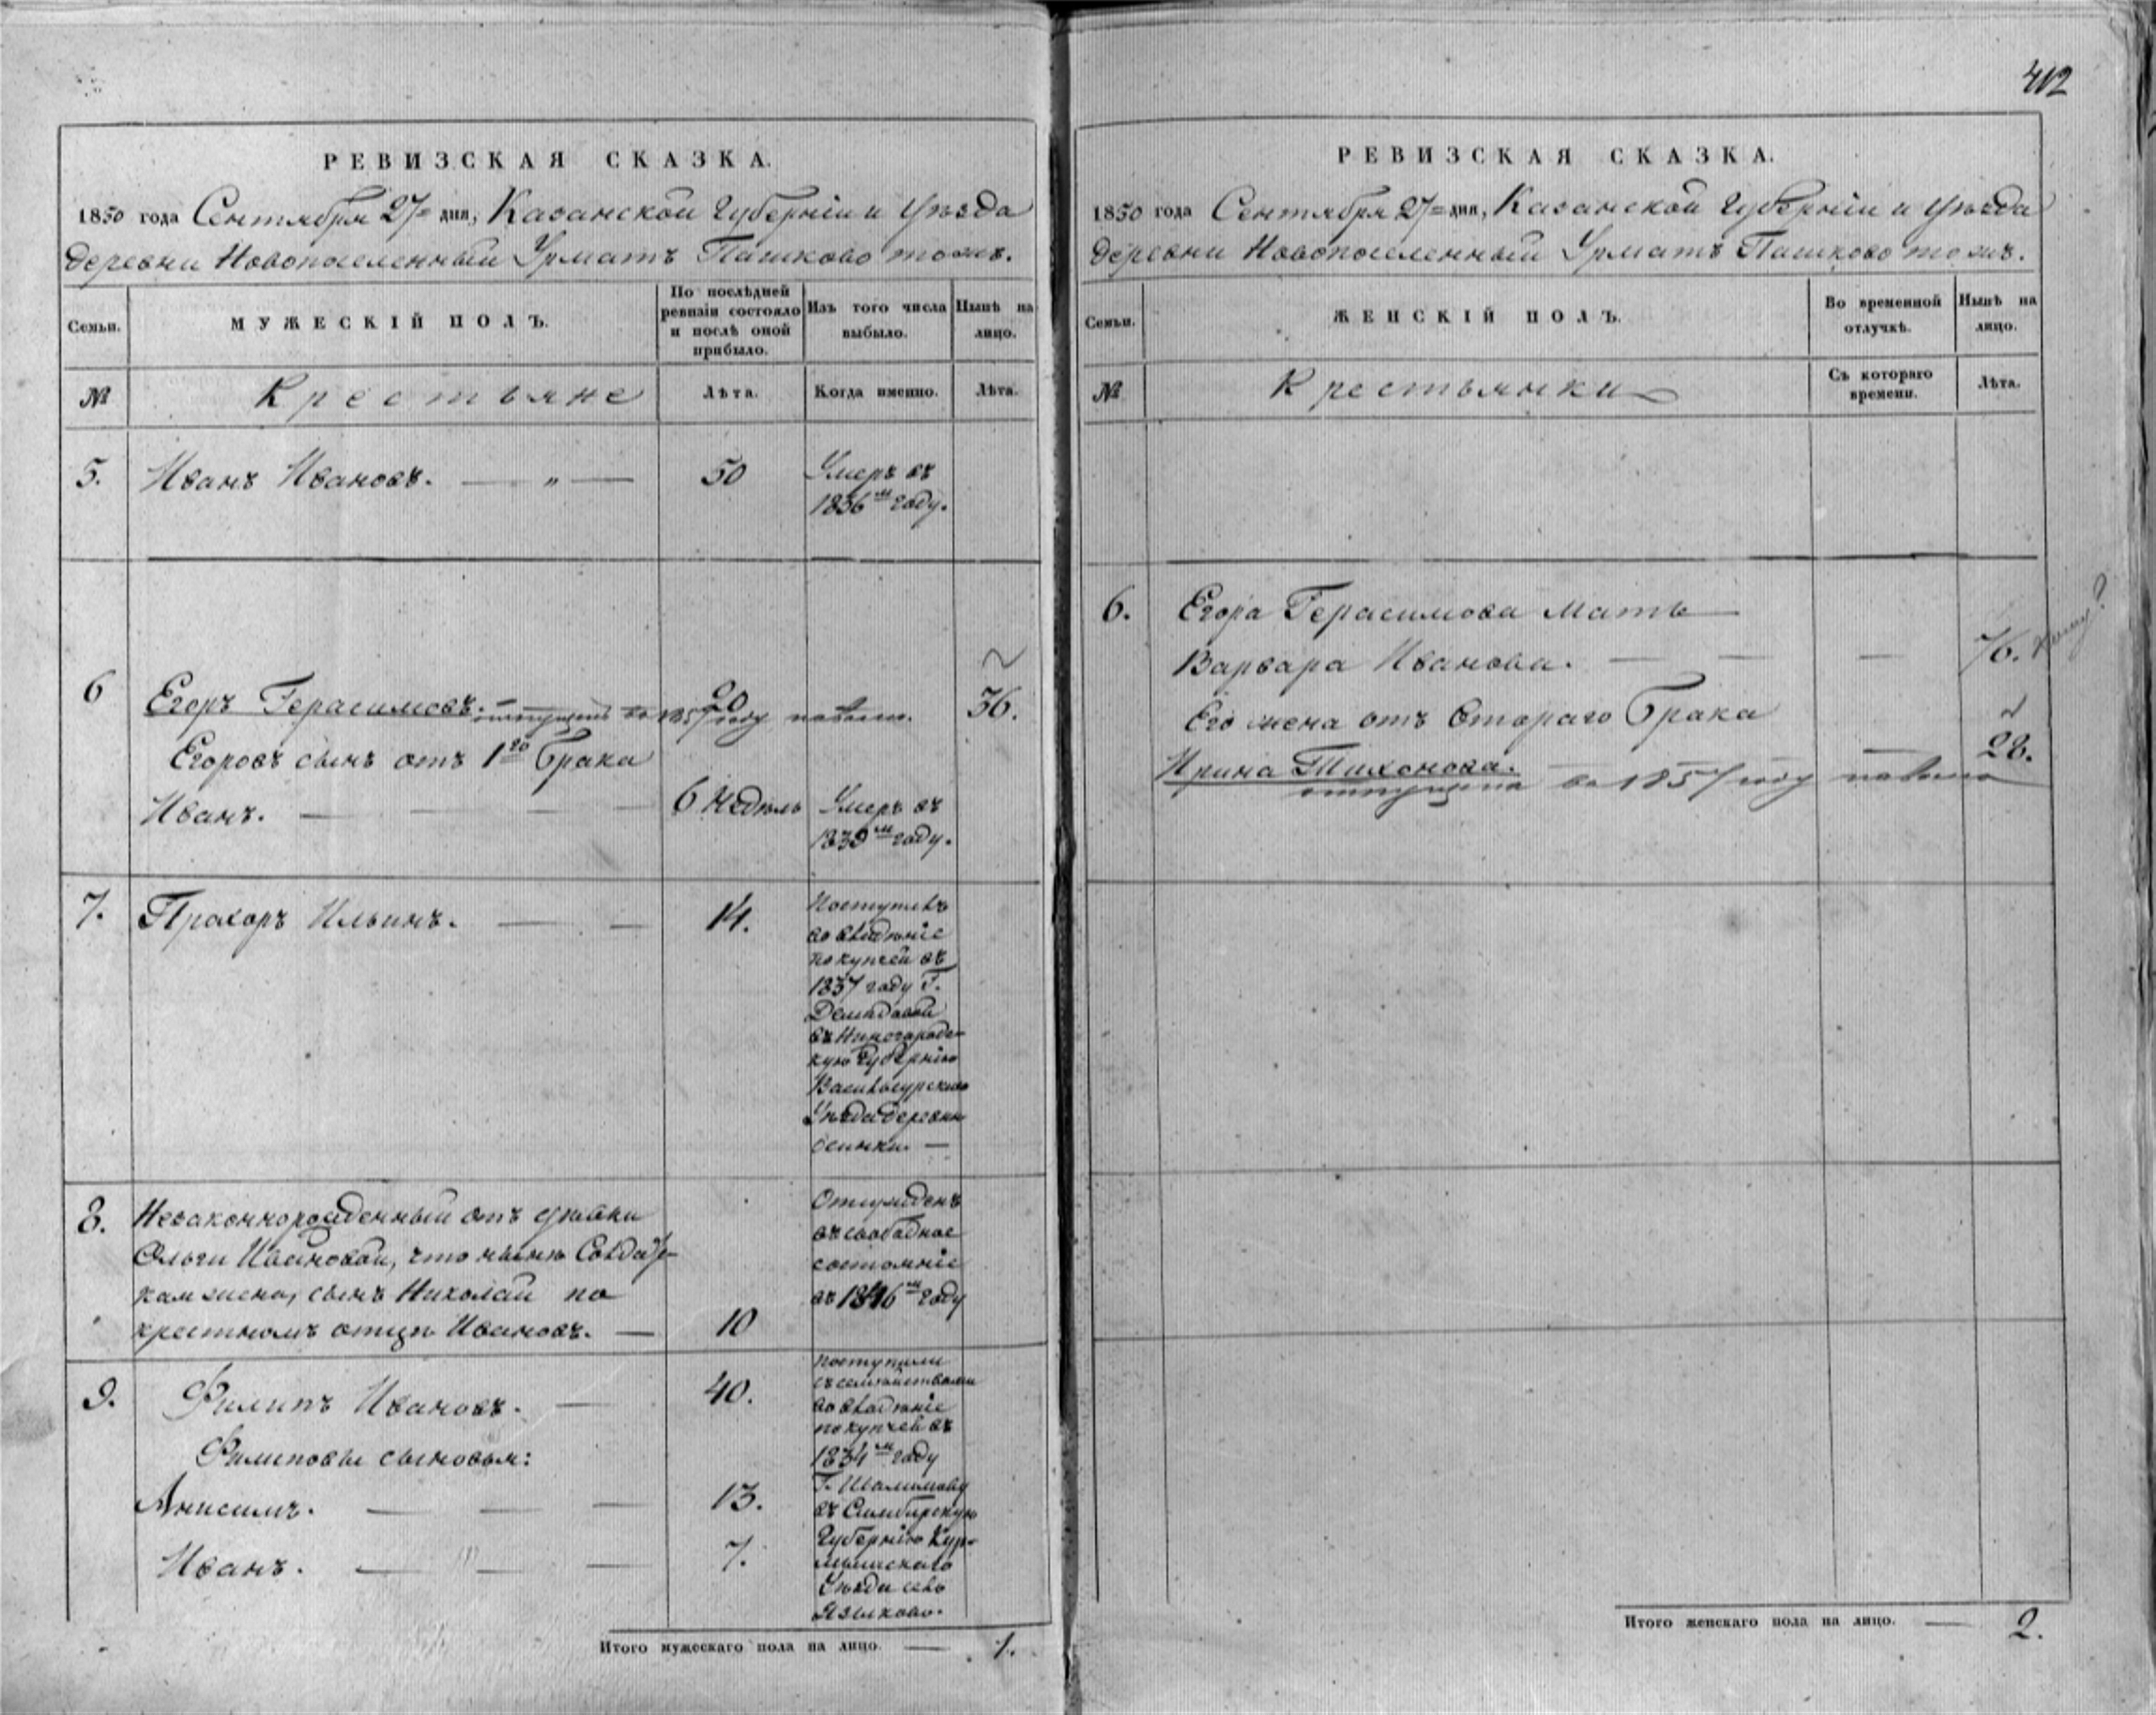 412
РЕВИЗСКАЯ СКАЗКА.
1850 года Сентября 27 дня, Казанской Губерніи и Уѣзда
деревни Новопоселенный Урматъ Пашково тожъ.
Семьи.
МУЖЕСКІЙ ПОЛЪ.
По послѣдней
ревизіи состояло
и послѣ оной
прибыло.
Изъ того числа
выбыло.
Нынѣ на
лицо.
№
Крестьяне
Лѣта.
Когда именно.
Лѣта.
5. Иванъ Ивановъ. — " — 50
Умеръ въ
1836м году.
6 Егоръ Герасимовъ. — 20 36.
отпущенъ въ 1857 году
Егоровъ сынъ отъ 1го брака
Иванъ. — — — 6 недѣль
Умеръ въ
1839м году.
7. Прахоръ Ильинъ. — — 14.
Поступилъ
во владѣніе
покупкой въ
1837 году Г.
Демидовой
въ Нижегородс-
кую Губернію
Васильсурскаго
Уѣзда деревни
Осинки. —
8. Незаконнорожденный отъ дѣвки
Ольги Ивановой, что нынѣ Солдатс-
кая жена, сынъ Николай по
крестномъ отцѣ Ивановъ. — 10
Отсужденъ
въ свободное
состояніе
въ 1846м году
9. Филипъ Ивановъ. — 40.
Филиповы сыновья:
Анисимъ. — — — 13.
Иванъ. — — — 7.
поступили
съ семействами
во владѣніе
покупкѣ въ
1834м году
Г.
въ Симбирскую
Губернію Кур-
мышскаго
Уѣзда село
Языково.
Итого мужескаго пола на лицо. — 1.
РЕВИЗСКАЯ СКАЗКА.
1850 года Сентября 27 дня, Казанской Губерніи и Уѣзда
деревни Новопоселенный Урматъ Пашково тожъ.
Семьи.
ЖЕНСКІЙ ПОЛЪ.
Во временной
отлучкѣ.
Нынѣ на
лицо.
№
Крестьянки
Съ котораго
времени.
Лѣта.
6. Егора Герасимова мать —
Варвара Иванова. — — — 76.
Его жена отъ втораго брака
Ирина Тихонова. — — — 28.
отпущена въ 1857 году
Итого женскаго пола на лицо. — 2.